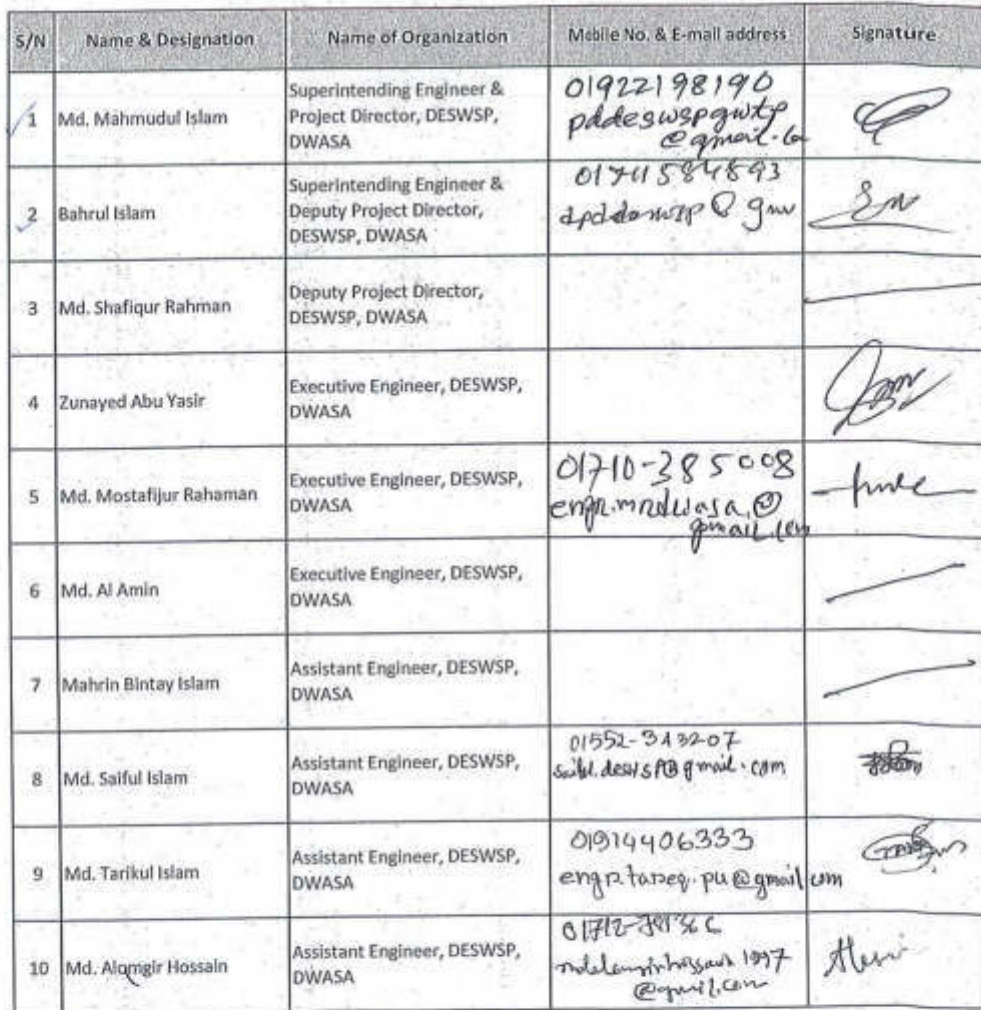 S/N Name & Designation Name of Organization Mobile No. & E-mail address Signature
1 Md. Mahmudul Islam
Superintending Engineer &
Project Director, DESWSP,
DWASA
01922198190
pddeswspgwtp
@gmail.co
2 Bahrul Islam
Superintending Engineer &
Deputy Project Director,
DESWSP, DWASA
01711584893
3 Md. Shafiqur Rahman
Deputy Project Director,
DESWSP, DWASA
4 Zunayed Abu Yasir
Executive Engineer, DESWSP,
DWASA
5 Md. Mostafijur Rahaman
Executive Engineer, DESWSP,
DWASA
01710-385008
engr.mrdwasa@
gmail.com
6 Md. Al Amin
Executive Engineer, DESWSP,
DWASA
7 Mahrin Bintay Islam
Assistant Engineer, DESWSP,
DWASA
8 Md. Saiful Islam
Assistant Engineer, DESWSP,
DWASA
01552-343207
9 Md. Tarikul Islam
Assistant Engineer, DESWSP,
DWASA
01914406333
engr.tareq.pu@gmail.com
10 Md. Alamgir Hossain
Assistant Engineer, DESWSP,
DWASA
@gmail.com